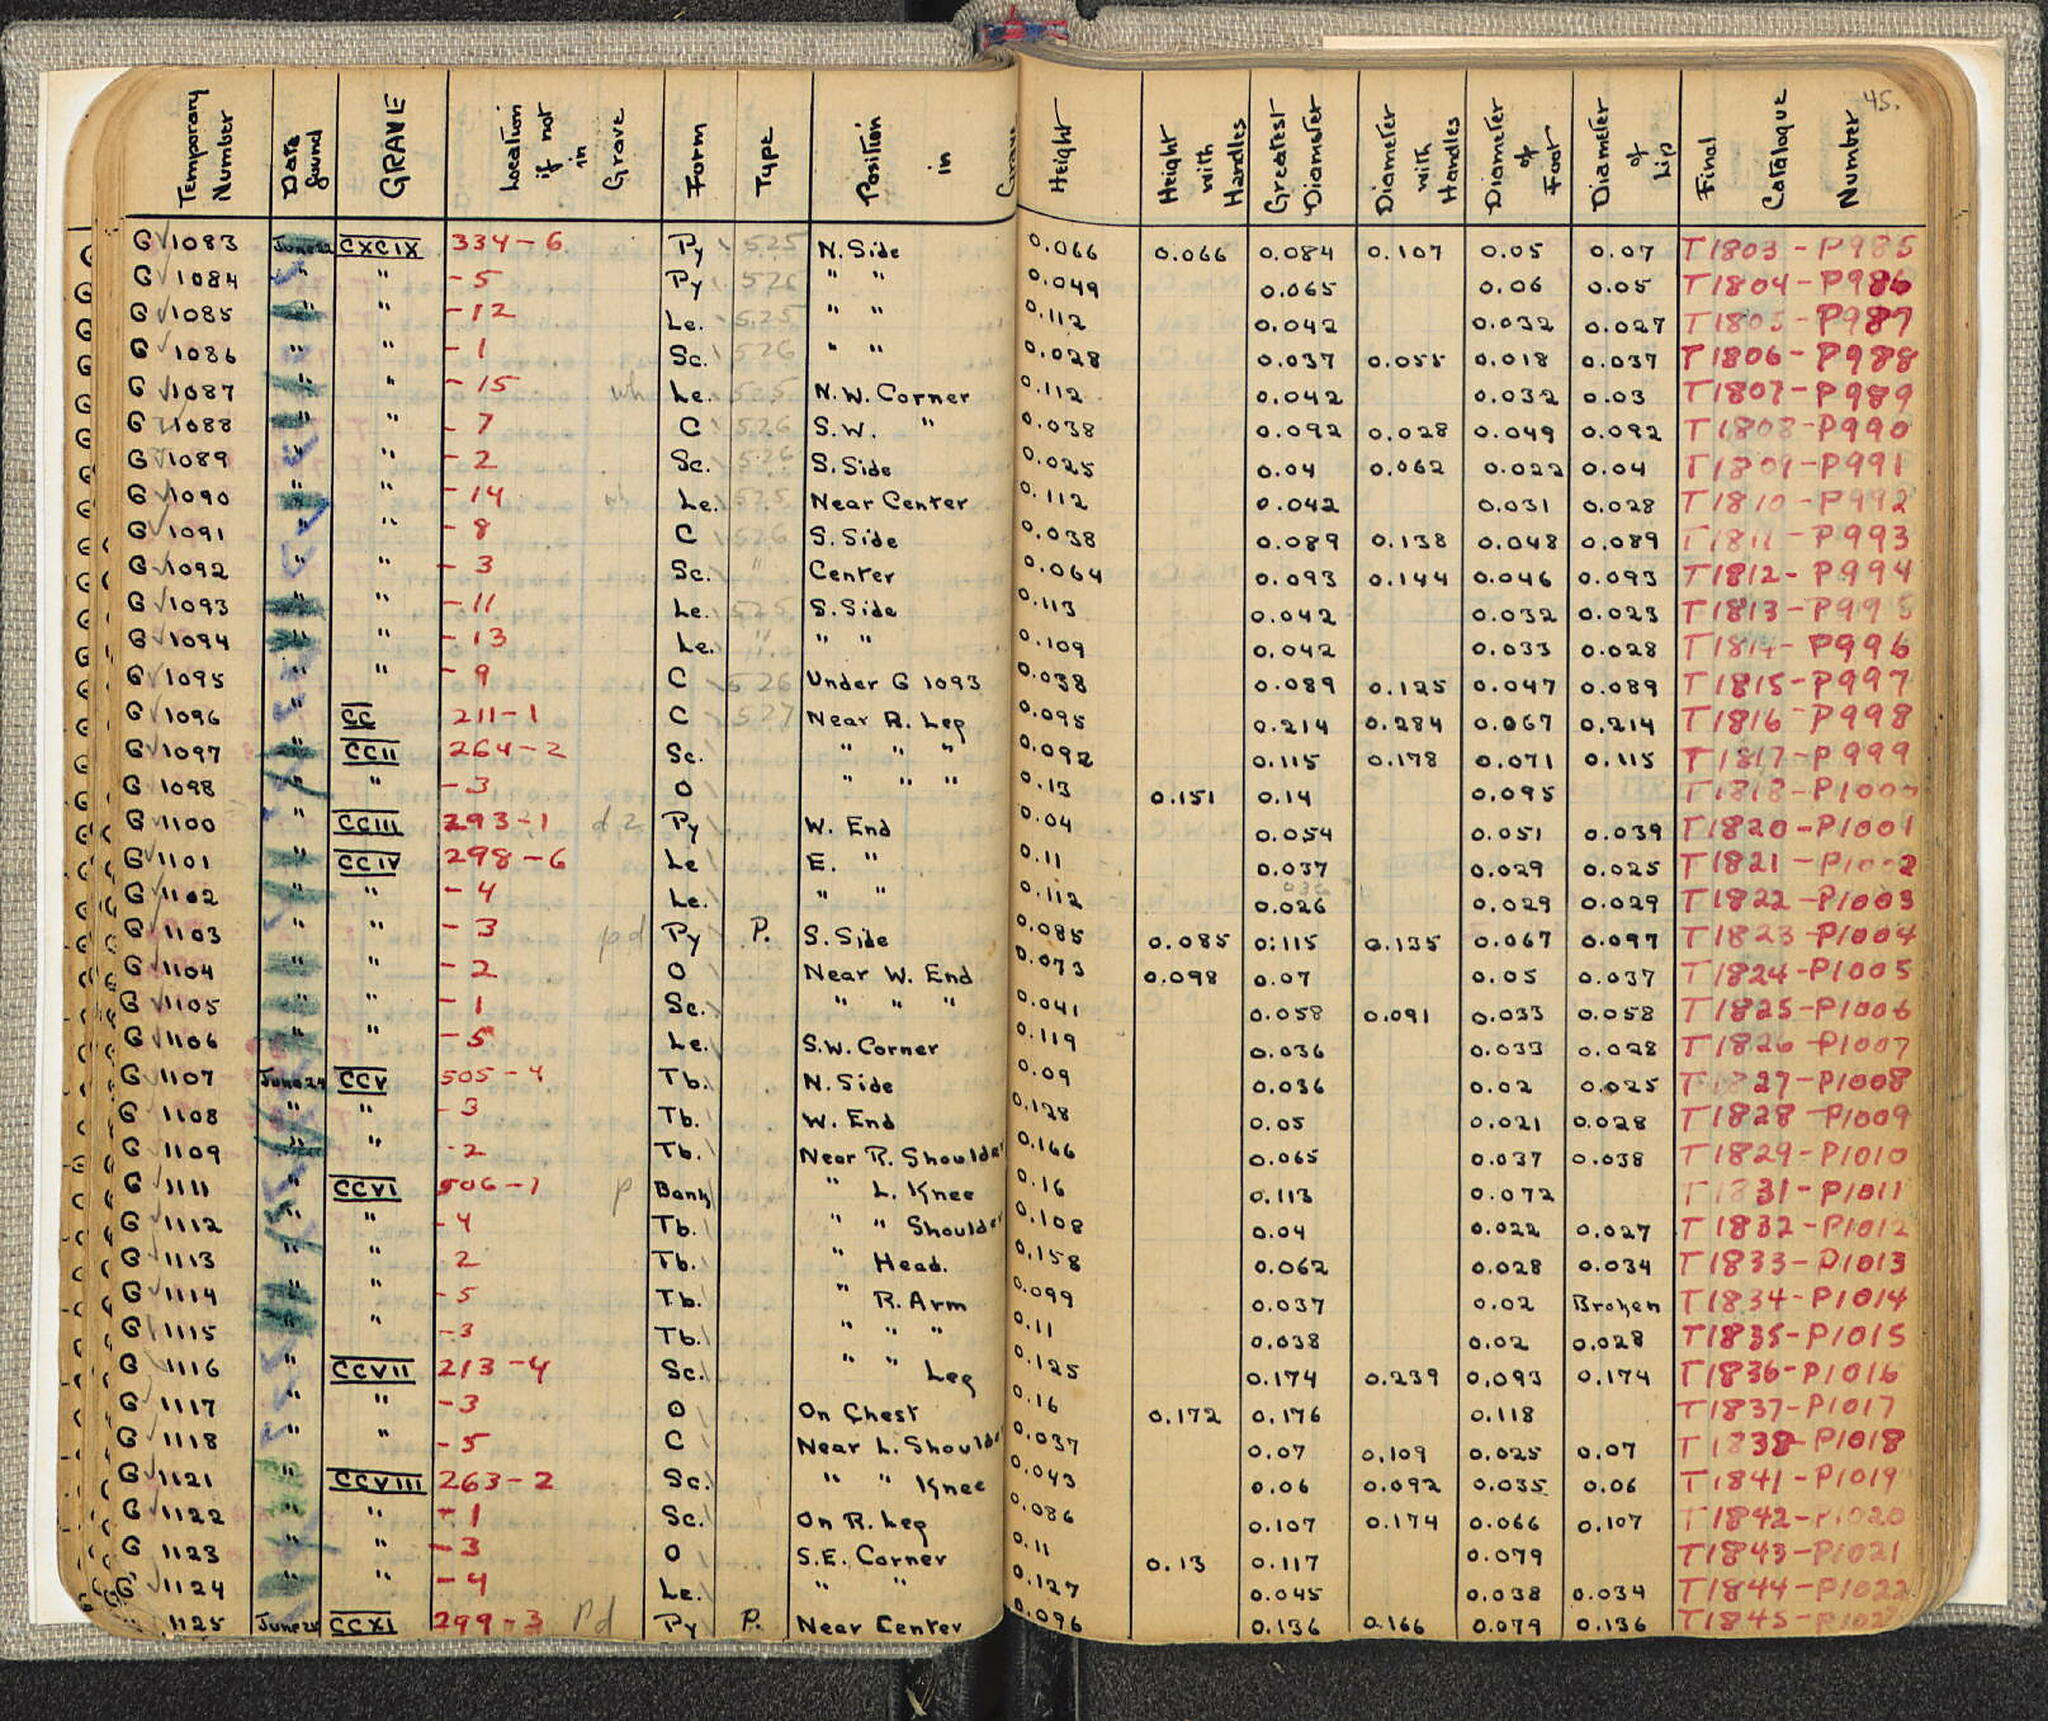 45.
Temporary Number | Date found | GRAVE | Location if not in Grave | Form | Type | Position in Grave | Height | Height with Handles | Greatest Diameter | Diameter with Handles | Diameter of Foot | Diameter of Lip | Final Catalogue Number
G 1083 June 22 CXCIX 334-6 Py 525 N. Side 0.066 0.066 0.084 0.107 0.05 0.07 T1803-P985
G 1084 " " -5 Py 526 " " 0.049 0.065 0.06 0.05 T1804-P986
G 1085 " " -12 Le. 525 " " 0.112 0.042 0.032 0.027 T1805-P987
G 1086 " " -1 Sc. 526 " " 0.028 0.037 0.055 0.018 0.037 T1806-P988
G 1087 " " -15 wh Le. 525 N.W. Corner 0.112 0.042 0.032 0.03 T1807-P989
G 1088 " " -7 C 526 S.W. " 0.038 0.092 0.028 0.049 0.092 T1808-P990
G 1089 " " -2 Sc. 526 S. Side 0.025 0.04 0.062 0.022 0.04 T1809-P991
G 1090 " " -14 wh Le. 525 Near Center 0.112 0.042 0.031 0.028 T1810-P992
G 1091 " " -8 C 526 S. Side 0.038 0.089 0.138 0.048 0.089 T1811-P993
G 1092 " " -3 Sc. " Center 0.064 0.093 0.144 0.046 0.093 T1812-P994
G 1093 " " -11 Le. 525 S. Side 0.113 0.042 0.032 0.023 T1813-P995
G 1094 " " -13 Le. " " " 0.109 0.042 0.033 0.028 T1814-P996
G 1095 " " -9 C 526 Under G 1093 0.038 0.089 0.125 0.047 0.089 T1815-P997
G 1096 " CC 211-1 C 527 Near R. Leg 0.095 0.214 0.284 0.067 0.214 T1816-P998
G 1097 " CCII 264-2 Sc. " " " 0.092 0.115 0.178 0.071 0.115 T1817-P999
G 1098 " " -3 O " " " 0.13 0.151 0.14 0.095 T1818-P1000
G 1100 " CCIII 293-1 d2 Py W. End 0.04 0.054 0.051 0.039 T1820-P1001
G 1101 " CCIV 298-6 Le E. " 0.11 0.037 0.029 0.025 T1821-P1002
G 1102 " " -4 Le. " " 0.112 0.026 0.029 0.029 T1822-P1003
G 1103 " " -3 pd Py P. S. Side 0.085 0.085 0.115 0.135 0.067 0.097 T1823-P1004
G 1104 " " -2 O Near W. End 0.073 0.098 0.07 0.05 0.037 T1824-P1005
G 1105 " " -1 Sc. " " " 0.041 0.058 0.091 0.033 0.058 T1825-P1006
G 1106 " " -5 Le. S.W. Corner 0.119 0.036 0.033 0.028 T1826-P1007
G 1107 June 24 CCV 505-4 Tb. N. Side 0.09 0.036 0.02 0.025 T1827-P1008
G 1108 " " -3 Tb. W. End 0.128 0.05 0.021 0.028 T1828-P1009
G 1109 " " -2 Tb. Near R. Shoulder 0.166 0.065 0.037 0.038 T1829-P1010
G 1111 " CCVI 506-1 p Bank " L. Knee 0.16 0.113 0.072 T1831-P1011
G 1112 " " -4 Tb. " " Shoulder 0.108 0.04 0.022 0.027 T1832-P1012
G 1113 " " 2 Tb. " Head. 0.158 0.062 0.028 0.034 T1833-P1013
G 1114 " " -5 Tb. " R. Arm 0.099 0.037 0.02 Broken T1834-P1014
G 1115 " " -3 Tb. " " " 0.11 0.038 0.02 0.028 T1835-P1015
G 1116 " CCVII 213-4 Sc. " " Leg 0.125 0.174 0.239 0.093 0.174 T1836-P1016
G 1117 " " -3 O On Chest 0.16 0.172 0.176 0.118 T1837-P1017
G 1118 " " -5 C Near L. Shoulder 0.037 0.07 0.109 0.025 0.07 T1838-P1018
G 1121 " CCVIII 263-2 Sc. " " Knee 0.043 0.06 0.092 0.035 0.06 T1841-P1019
G 1122 " " -1 Sc. On R. Leg 0.086 0.107 0.174 0.066 0.107 T1842-P1020
G 1123 " " -3 O S.E. Corner 0.11 0.13 0.117 0.079 T1843-P1021
G 1124 " " -4 Le. " " 0.127 0.045 0.038 0.034 T1844-P1022
1125 June 25 CCXI 299-3 Pd Py P. Near Center 0.096 0.136 0.166 0.079 0.136 T1845-P1023